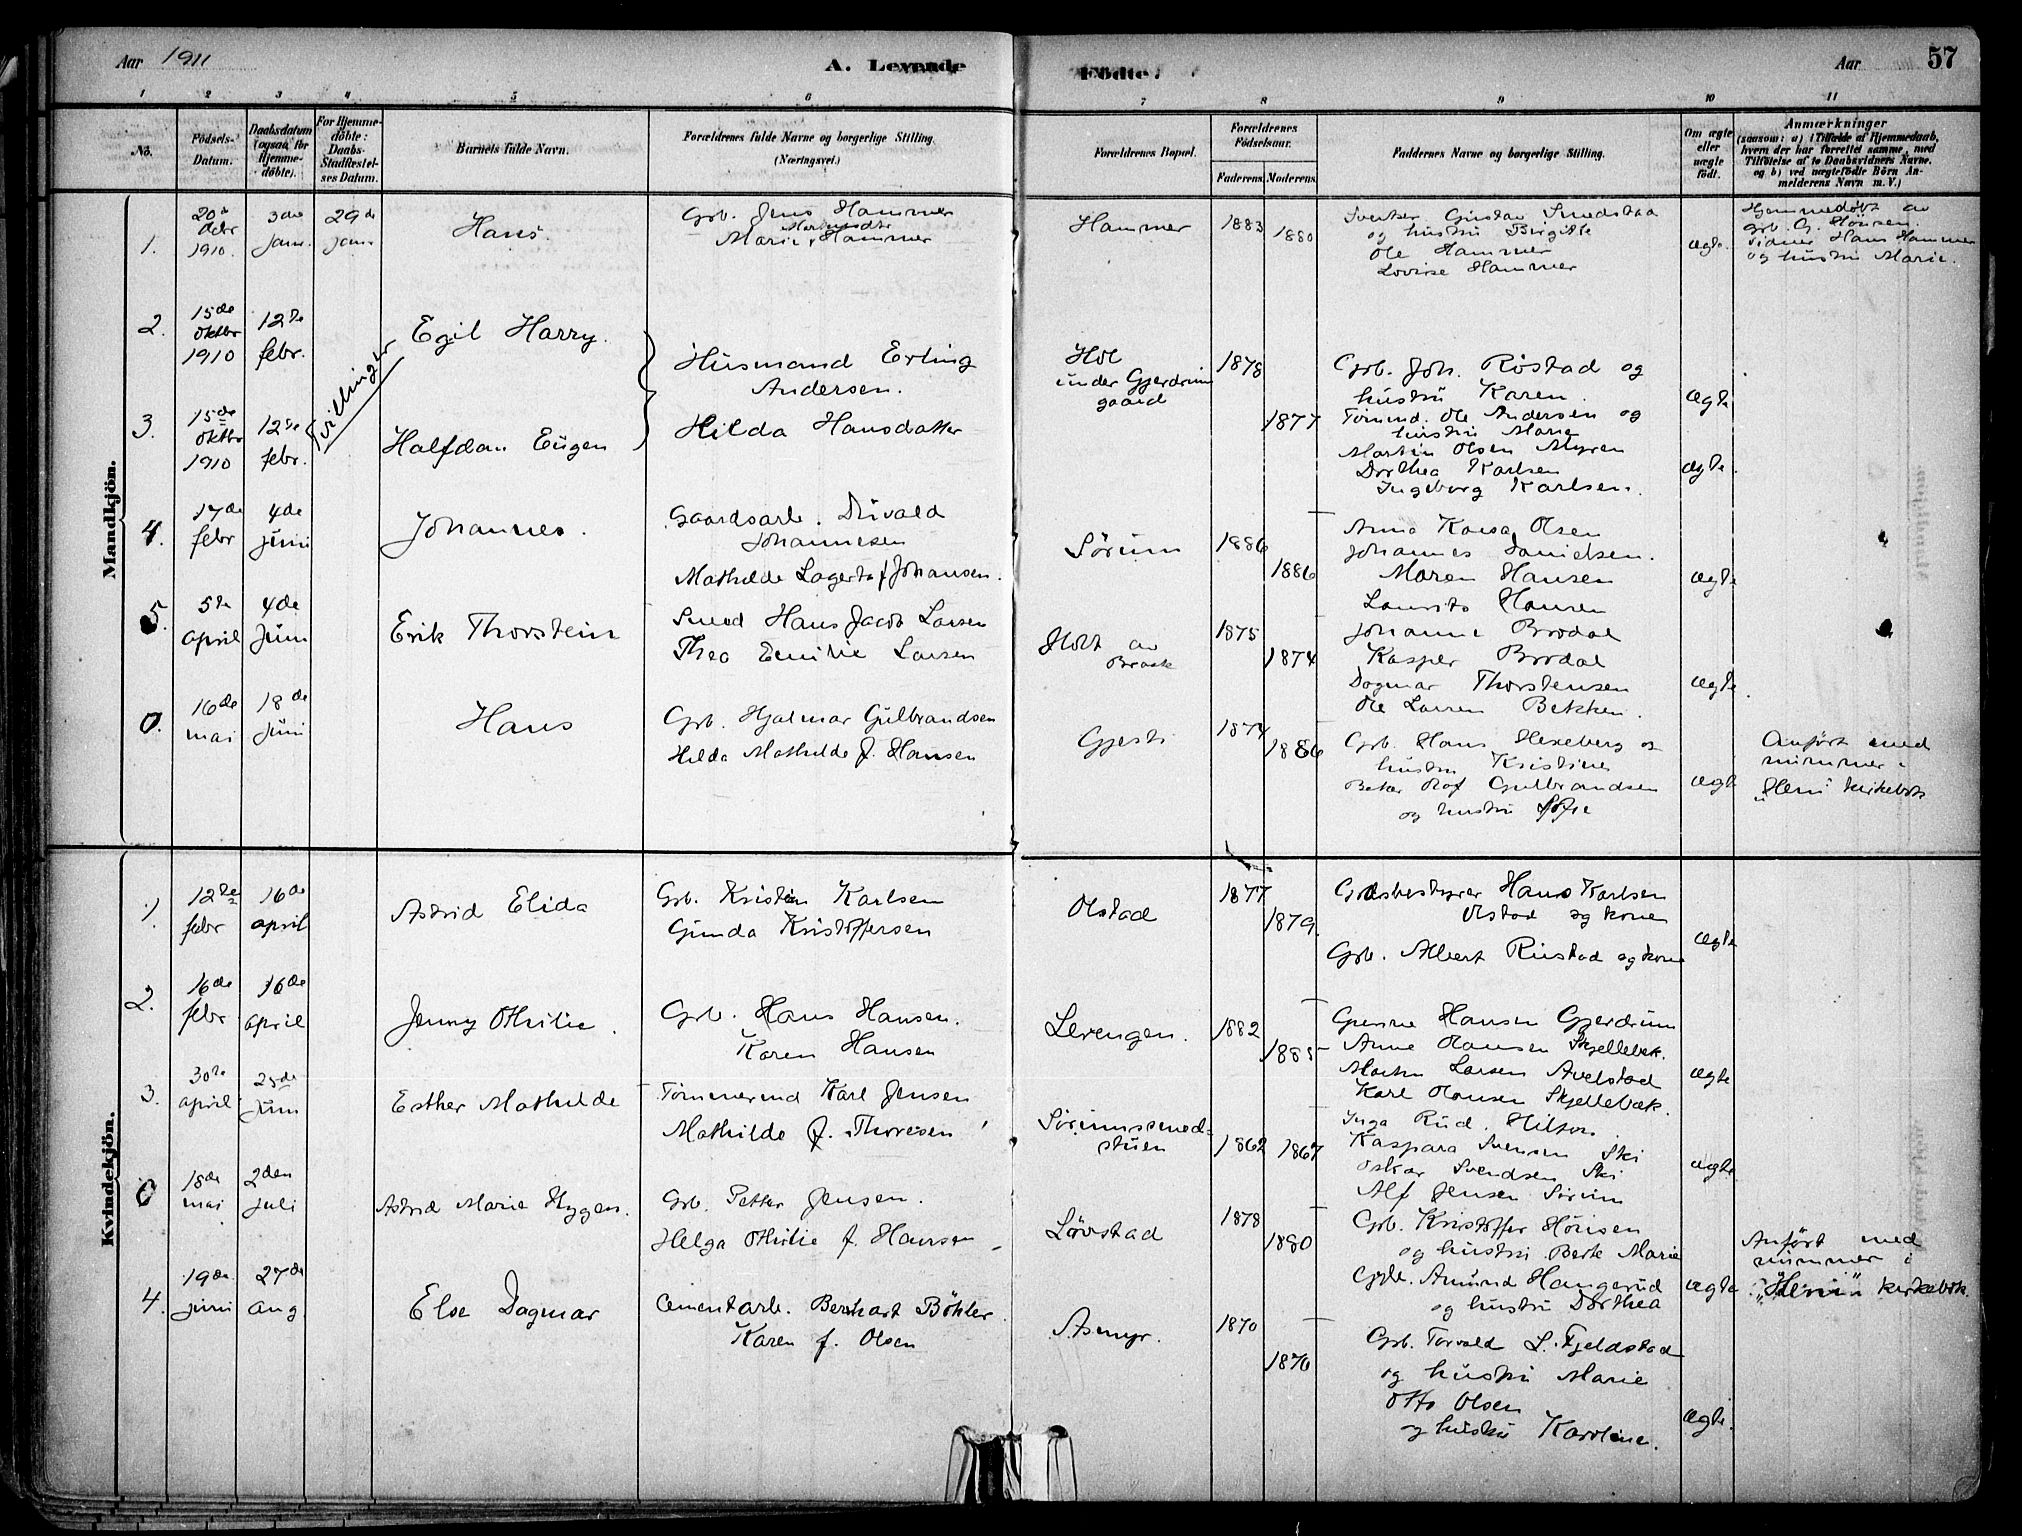 Aar 1911
A. Levende
Födte.
Aar
57
1
2
3
4
5
6
7
8
9
10
11
No.
Födsels-
Datum.
Daabsdatum
(ogsaa for
Hjemme-
döbte).
For Hjemme-
döbte:
Daabs-
Stadfestel-
ses Datum.
Barnets fulde Navn.
Forældrenes fulde Navne og borgerlige Stilling.
(Næringsvei.)
Forældrenes Bopæl.
Forældrenes
Födselsaar.
Faderens.
Moderens.
Faddernes Navne og borgerlige Stilling.
Om ægte
eller
uægte
født.
Anmærkninger
(saasom: a) i Tilfælde af Hjemmedaab,
hvem der har forrettet samme, med
Tilföielse af to Daabsvidners Navne.
og b) ved uægtefödte Börn An-
melderens Navn m.V.)
Mandkjön.
1.
20de
debr
1910.
3de
jan.
29de
jan
Hans.
Grb. Jens Hammer
Marie Hammer
Hammer
1883
1880
Gustav Smedstad
og hustru Birgitte
Ole Hammer
Lovise Hammer
ægte.
Hjemmedøbt av
grb. G. Hønsen.
Vidner Hans Hammer
og hustru Marie.
2.
15de
oktbr
1910
12te
febr.
Tvillinger
Egil Harry.
Husmand Erling
Andersen.
Hol
under Gjerdrum
gaard
1878
Grb. Joh. Røstad og
hustru Karen.
ægte
3.
15de
oktbr
1910
12te
febr.
Halfdan Eugen
Hilda Hansdatter
1877
Tømmd. Ole Andersen og
hustru Marie
Martin Olsen Myren
Dorthea Karlsen
Ingeborg Karlsen.
ægte.
4.
17de
febr
4de
juni
Johannes.
Gaardsarb.
Johannesen
Mathilde Lagerta f. Johansen.
Sørum
1886
1886
Anna Olsen
Johannes Danielsen.
Maren Hansen
Laurits Hansen
ægte
5.
5te
april
4de
Juni
Erik Thorstein
Smed Hans Jacob Larsen
Thea Emilie Larsen
Holt av
Braak
1875
1874
Johanne Brodal
Kasper Brodal
Dagmar Thorstensen
Ole Larsen Bekken.
ægte.
0.
16de
mai
18de
Juni
Hans
Grb. Hjalmar Gulbrandsen
Hilda Mathilde f. Hansen
Gjesti
1874
1886
Grb. Hans Hexeberg og
hustru Kristine
Olof Gulbrandsen
og hustru Sofie
ægt
Anført med
nummer i
"Heni" kirkebok
Kvindekjön.
1.
12te
febr
16de
april
Astrid Elida
Grb. Kristian Karlsen
Gunda Kristoffersen
Olstad
1877
1879.
Gaardsbestyrer Hans Karlsen
Olstad og kone
Grb. Albert Rustad og kone
ægte
2.
16de
febr
16de
april
Jenny Othilie.
Grb. Hans Hansen.
Karen Hansen
Levengen.
1882
1885
Hansen Gjerdrum
Anne Hansen Skjellebæk.
Martin Larsen Avelstad
Karl Hansen Skjellebæk.
ægte
3.
30te
april
25de
Juni
Esther Mathilde
Tømmermd Karl Jensen
Mathilde f. Thoresen
Sørumssmed-
stuen
1862
1867
Inga Rud. Hilton.
Kaspara Svensen Ski
Oskar Svendsen Ski
Alf Jensen Sørum
ægte.
0
18de
mai
2den
juli
Astrid Marie Hygen.
Grb. Petter Jensen.
Helga Othilie f. Hansen
Løvstad
1878
1880
Grb. Kristoffer Hønsen
og hustru Berte Marie
Grb. Amund Haugerud
og hustru Dorthea
ægte
Anført med
nummer i
"Heni" kirkebok.
4.
19de
juni
27de
aug.
Else Dagmar
Cementarb. Bernhart Böhler
Karen f. Olsen
Asmyr.
1870
1870
Grb. Torvald L. Fjeldstad
og hustru Marie
Otto Olsen
og hustru Karoline.
ægte.